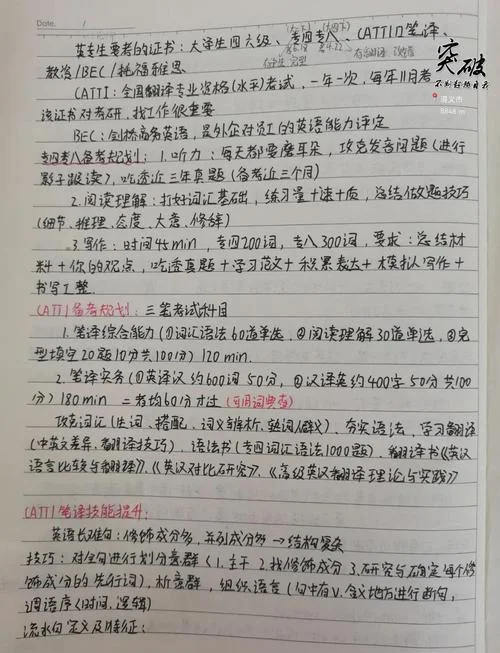 Date. /
(大二下) (大四下)
英专生要考的证书：大学生四六级、专四专八、CATTI口笔译、
教资/BEC/托福雅思
CATTI：全国翻译专业资格(水平)考试，一年一次，每年11月考
该证书对考研，找工作很重要
BEC：剑桥商务英语，是外企对员工的英语能力评定
专四专八备考规划：1.听力：每天都要磨耳朵，攻克发音问题(进行
影子跟读)，吃透近三年真题(备考近三个月)
2.阅读理解：打好词汇基础，练习量+速+质，总结做题技巧
(细节、推理、态度、大意、修辞)
3.写作：时间45min，专四200词，专八300词，要求：总结材
料+你的观点，吃透真题+学习范文+积累表达+模拟写作+
书写工整
CATTI备考规划：三笔考试科目
1.笔译综合能力(①词汇语法60道单选，②阅读理解30道单选，③完
型填空20题10分共100分) 120min.
2.笔译实务(①英译汉约600词50分，②汉译英约400字50分共100
分) 180min 二者均60分才过(可用词典查)
攻克词汇(生词、搭配、词义辨析、熟词僻义)，夯实语法，学习翻译
(中英文差异、翻译技巧)，语法书(专四词汇语法1000题)，翻译书《英汉
语言比较与翻译》、《英汉对比研究》、《高级英汉翻译理论与实践》
CATTI笔译技能提升：
英语长难句：修饰成分多，并列成分多→结构复杂
技巧：对全句进行划分意群(1.主干 2.找修饰成分 3.研究与确定每个修
饰成分的先行词)，析意群，组织语言(句中有V.含义地方进行断句，
调语序(时间、逻辑)
流水句定义及特征：
突破
遵义市
8848 m